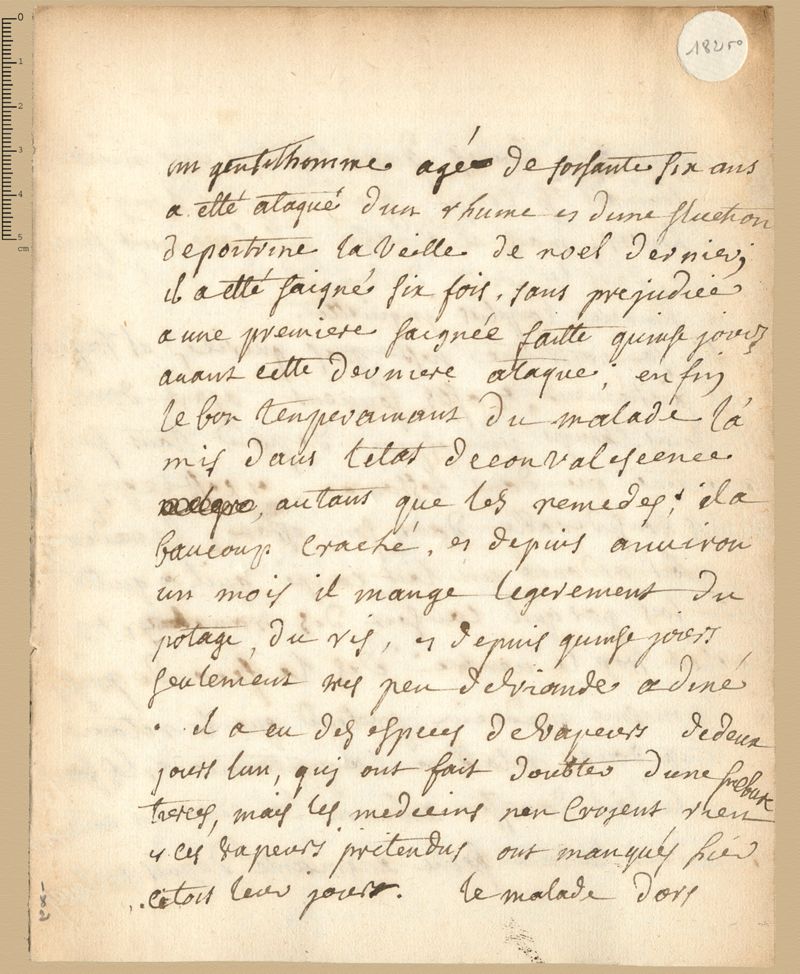 1825°
un gentilhomme agé de soisante six ans
a etté ataqué dun rhume et dune fluction
de poitrine la veille de noel dernier;
il a etté saigné six fois, sans prejudice
a une premiere saignée faitte quinse jours
auant cette derniere ataque; enfin
le bon temperamant du malade la
mis dans letat de convalescence
autant que les remedes; il a
baucoup craché, et depuis anuiron
un mois il mange legerement du
potage, du ris, et depuis quinse jours
seulement tres peu de viande a diné
. il a eu des especes de vapeurs de deux
jours lun, qui ont fait doubter dune
tierce, mais les medecins nen croyent rien
et ces vapeurs pretendus ont manqués hier
cetoit leur jour. le malade dort